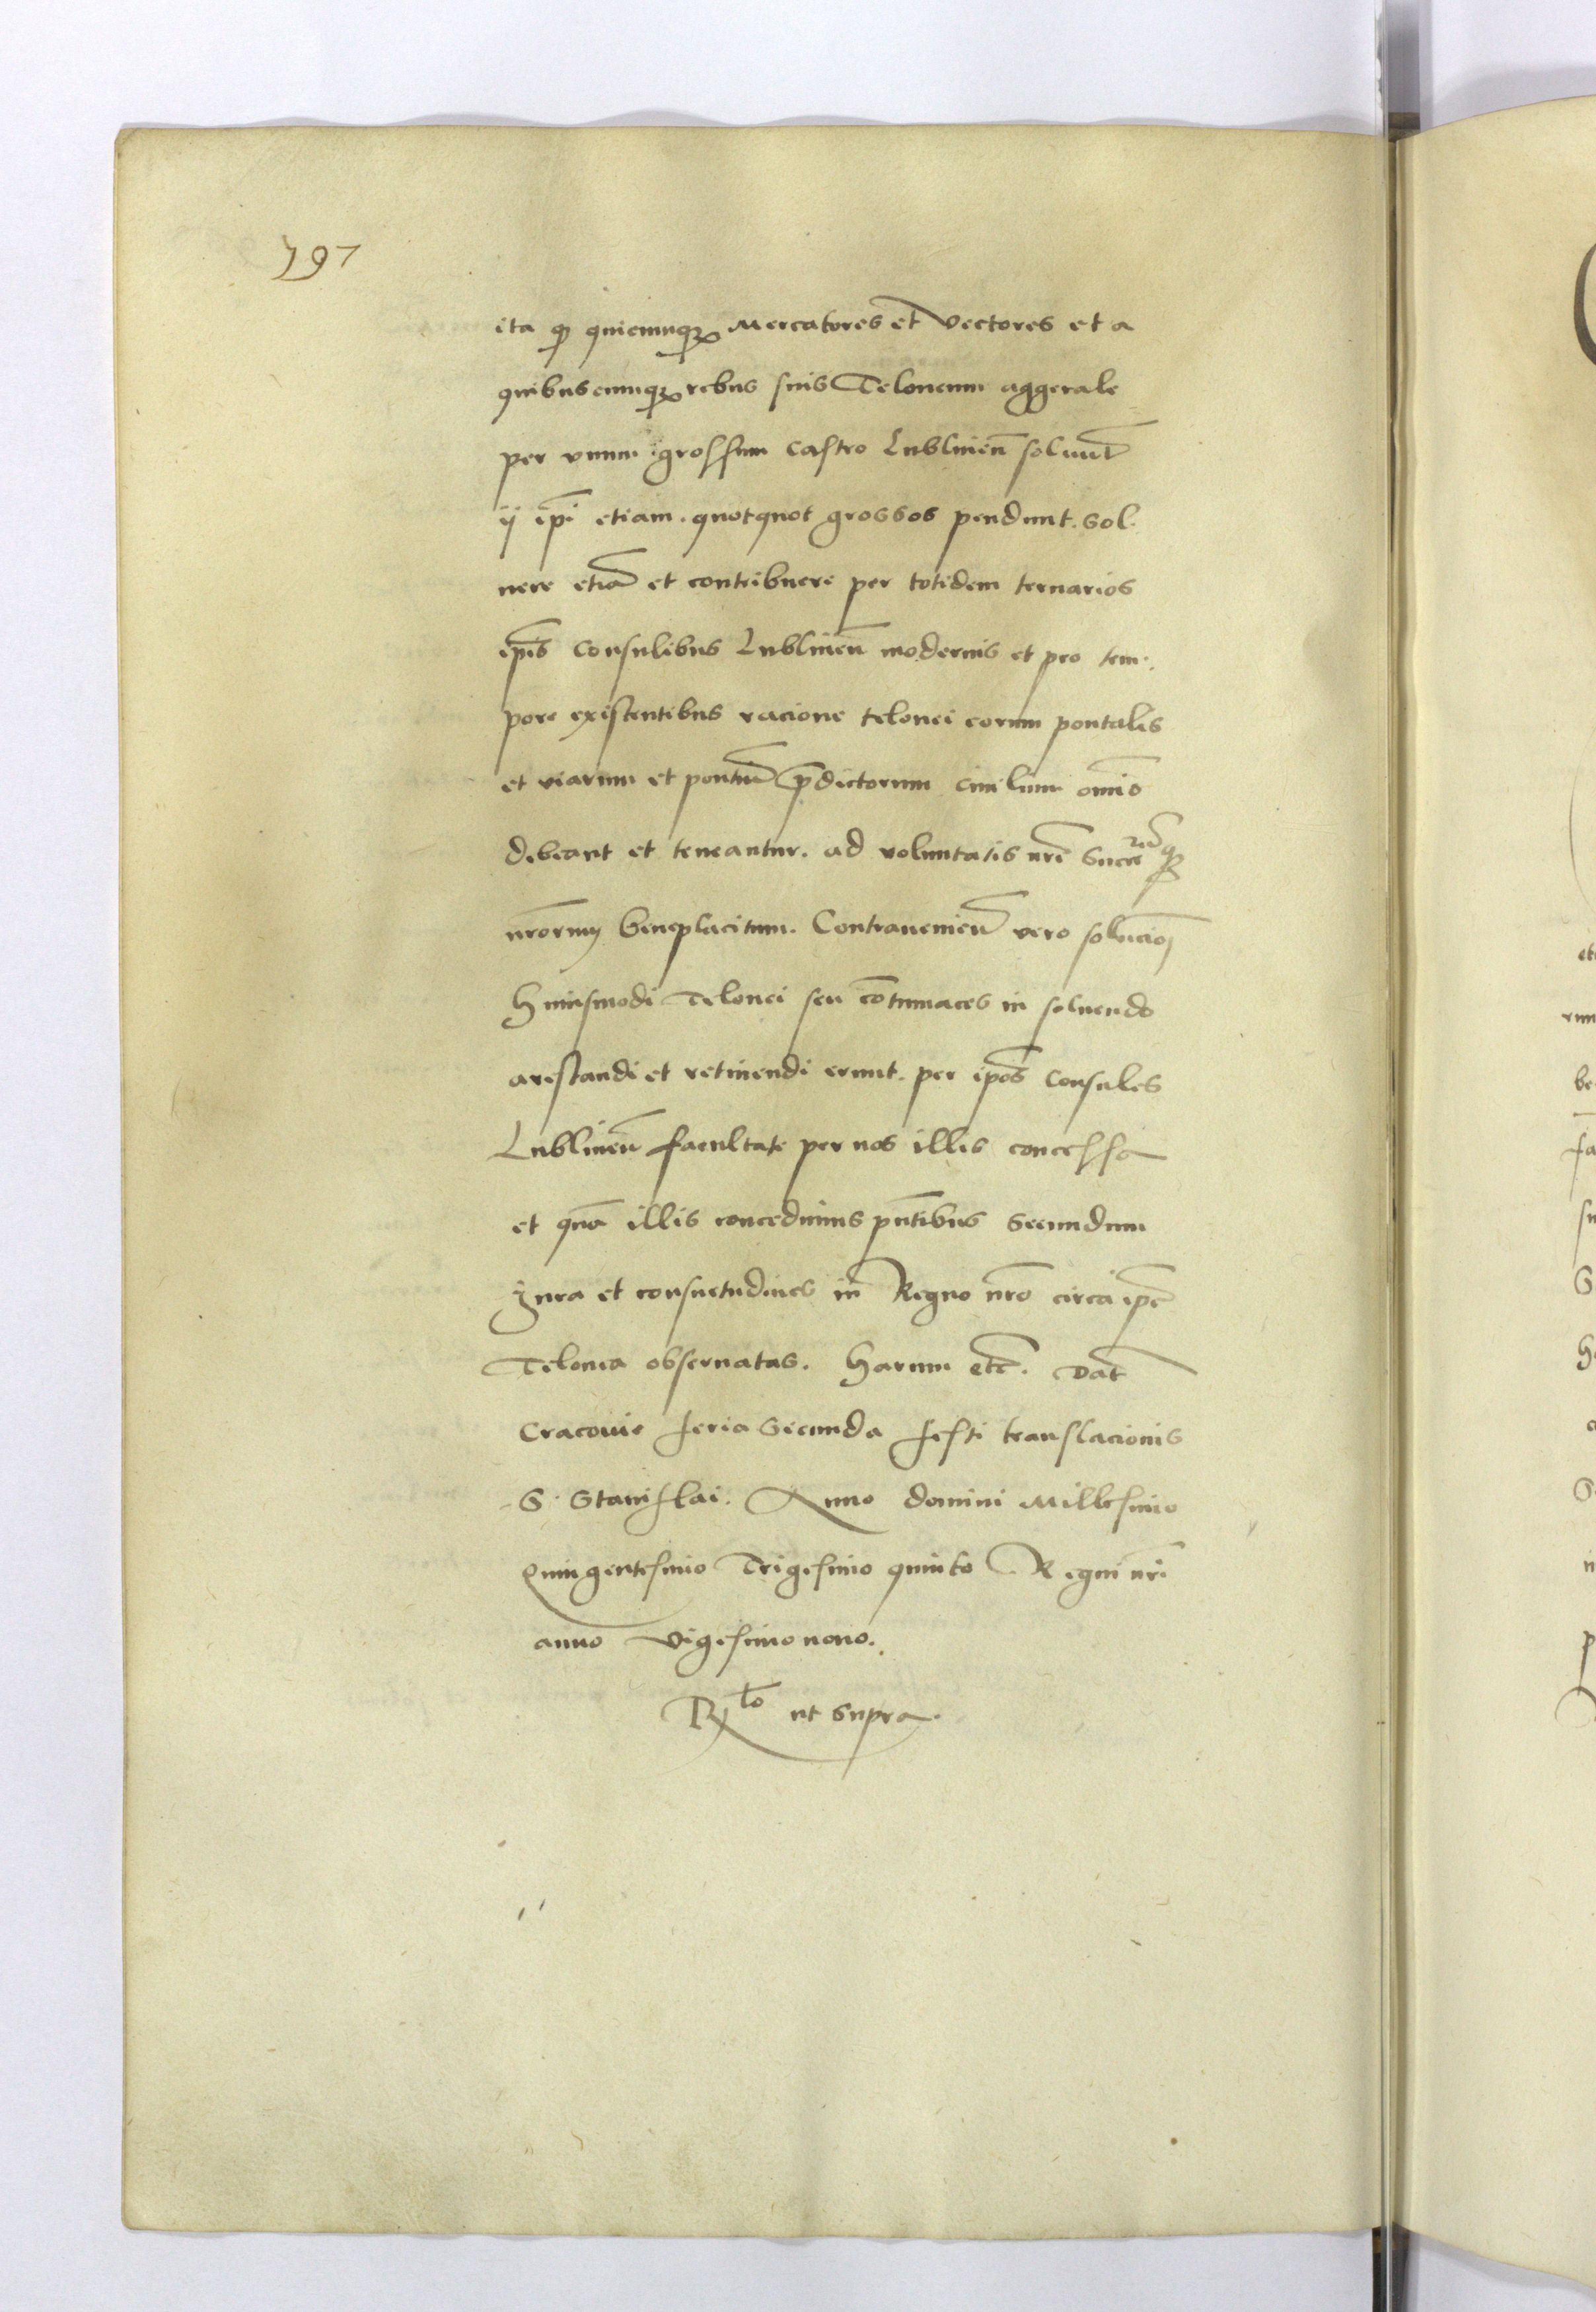 797
ita qȝ quicunqȝ Mercatores et Vectores et a
quibuscunqȝ rebus suis Teloneum aggerale
per vnum grossum Castro Lublineñ soluunt
ij ip̃i etiam. quotquot grossos pendunt. sol-
uere etiã et contribuere per totidem ternarios
ip̃is Consulibus Lublineñ modernis et pro tem-
pore existentibus racione telonei eorum pontalis
et viarum et pontiũ p̃dictorum ciuilium om̃is
debeant et teneantur. ad voluntatis nr̃e Succe rũqȝ
nr̃orum beneplacitum. Contrauenieñ vero soluciõi
Huiusmodi Telonei seu cõtumaces in soluendo
arestandi et retinendi erunt. per ip̃os Consules
Lublineñ facultate per nos illis concessa
et quã illis concedimus p̃ntibus Secundum
Jura et consuetudines in Regno nr̃o circa ip̃e
Telonea obseruatas. Harum etc̃. Dat̃
Cracouie feria Secunda festi translacionis
S. Stanislai. Anno domini Millesimo
Quingentesimo Trigesimo quinto Regni nr̃i
anno Vigesimo nono.
Rlo ut Supra.